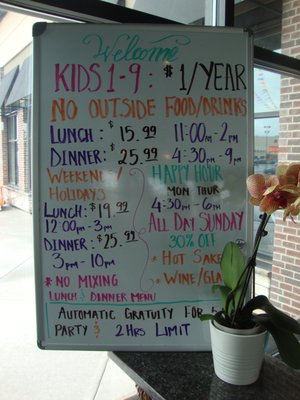 Welcome
KIDS 1-9: $1/YEAR
NO OUTSIDE FOOD/DRINKS
LUNCH: $15.99 11:00AM-2PM
DINNER: $25.99 4:30PM-9PM
WEEKENDS/ HAPPY HOUR
HOLIDAYS MON THUR
LUNCH: $19.99 4:30PM-6PM
12:00PM-3PM ALL DAY SUNDAY
DINNER: $25.99 30% OFF
3PM-10PM * HOT SAKE
* NO MIXING * WINE/GLA
LUNCH & DINNER MENU
AUTOMATIC GRATUITY FOR
PARTY & 2HRS LIMIT